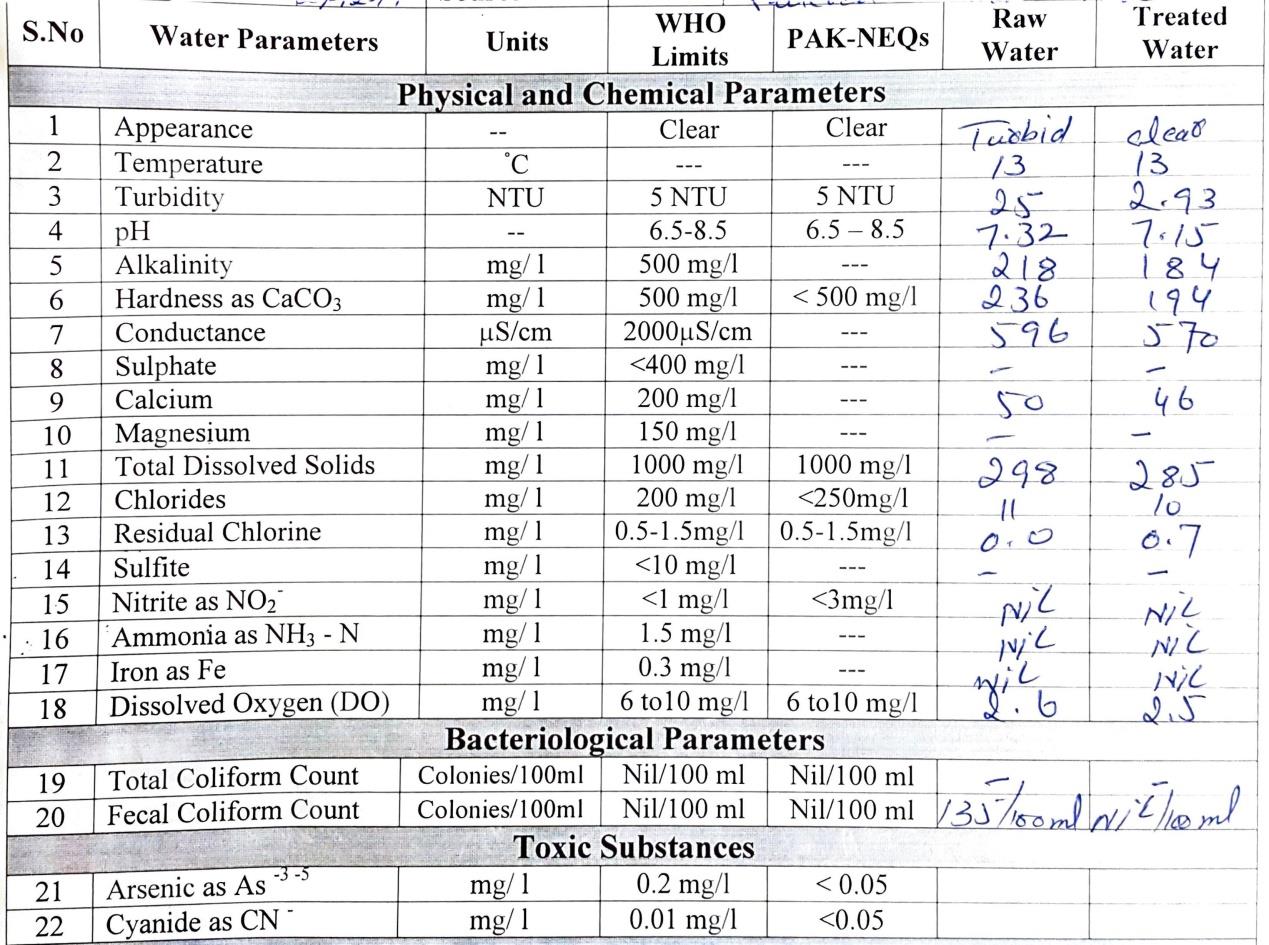 S.No Water Parameters Units WHO Limits PAK-NEQs Raw Water Treated Water
Physical and Chemical Parameters
1 Appearance -- Clear Clear Turbid clear
2 Temperature °C --- --- 13 13
3 Turbidity NTU 5 NTU 5 NTU 25 2.93
4 pH -- 6.5-8.5 6.5 – 8.5 7.32 7.15
5 Alkalinity mg/ l 500 mg/l --- 218 184
6 Hardness as CaCO₃ mg/ l 500 mg/l < 500 mg/l 236 194
7 Conductance µS/cm 2000µS/cm --- 596 570
8 Sulphate mg/ l <400 mg/l --- – –
9 Calcium mg/ l 200 mg/l --- 50 46
10 Magnesium mg/ l 150 mg/l --- – –
11 Total Dissolved Solids mg/ l 1000 mg/l 1000 mg/l 298 285
12 Chlorides mg/ l 200 mg/l <250mg/l 11 10
13 Residual Chlorine mg/ l 0.5-1.5mg/l 0.5-1.5mg/l 0.0 0.7
14 Sulfite mg/ l <10 mg/l --- – –
15 Nitrite as NO₂⁻ mg/ l <1 mg/l <3mg/l Nil Nil
16 Ammonia as NH₃ - N mg/ l 1.5 mg/l --- Nil Nil
17 Iron as Fe mg/ l 0.3 mg/l --- Nil Nil
18 Dissolved Oxygen (DO) mg/ l 6 to10 mg/l 6 to10 mg/l 2.6 2.5
Bacteriological Parameters
19 Total Coliform Count Colonies/100ml Nil/100 ml Nil/100 ml – –
20 Fecal Coliform Count Colonies/100ml Nil/100 ml Nil/100 ml 135/100ml Nil/100ml
Toxic Substances
21 Arsenic as As ⁻³ ⁻⁵ mg/ l 0.2 mg/l < 0.05
22 Cyanide as CN ⁻ mg/ l 0.01 mg/l <0.05